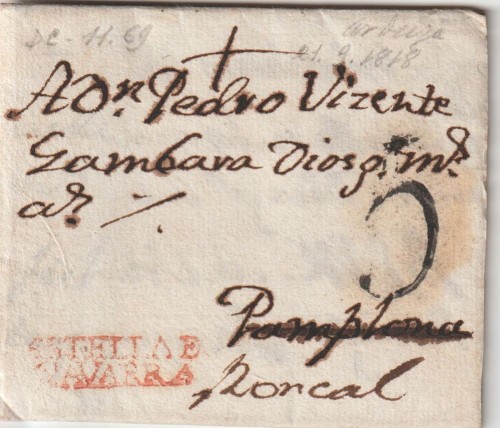 DC - 11.69
21.9.1818
A Dn. Pedro Vizente
Gambara Dios g. ms.
as.
Pamplona
ESTELLA E
NAVARRA
Roncal